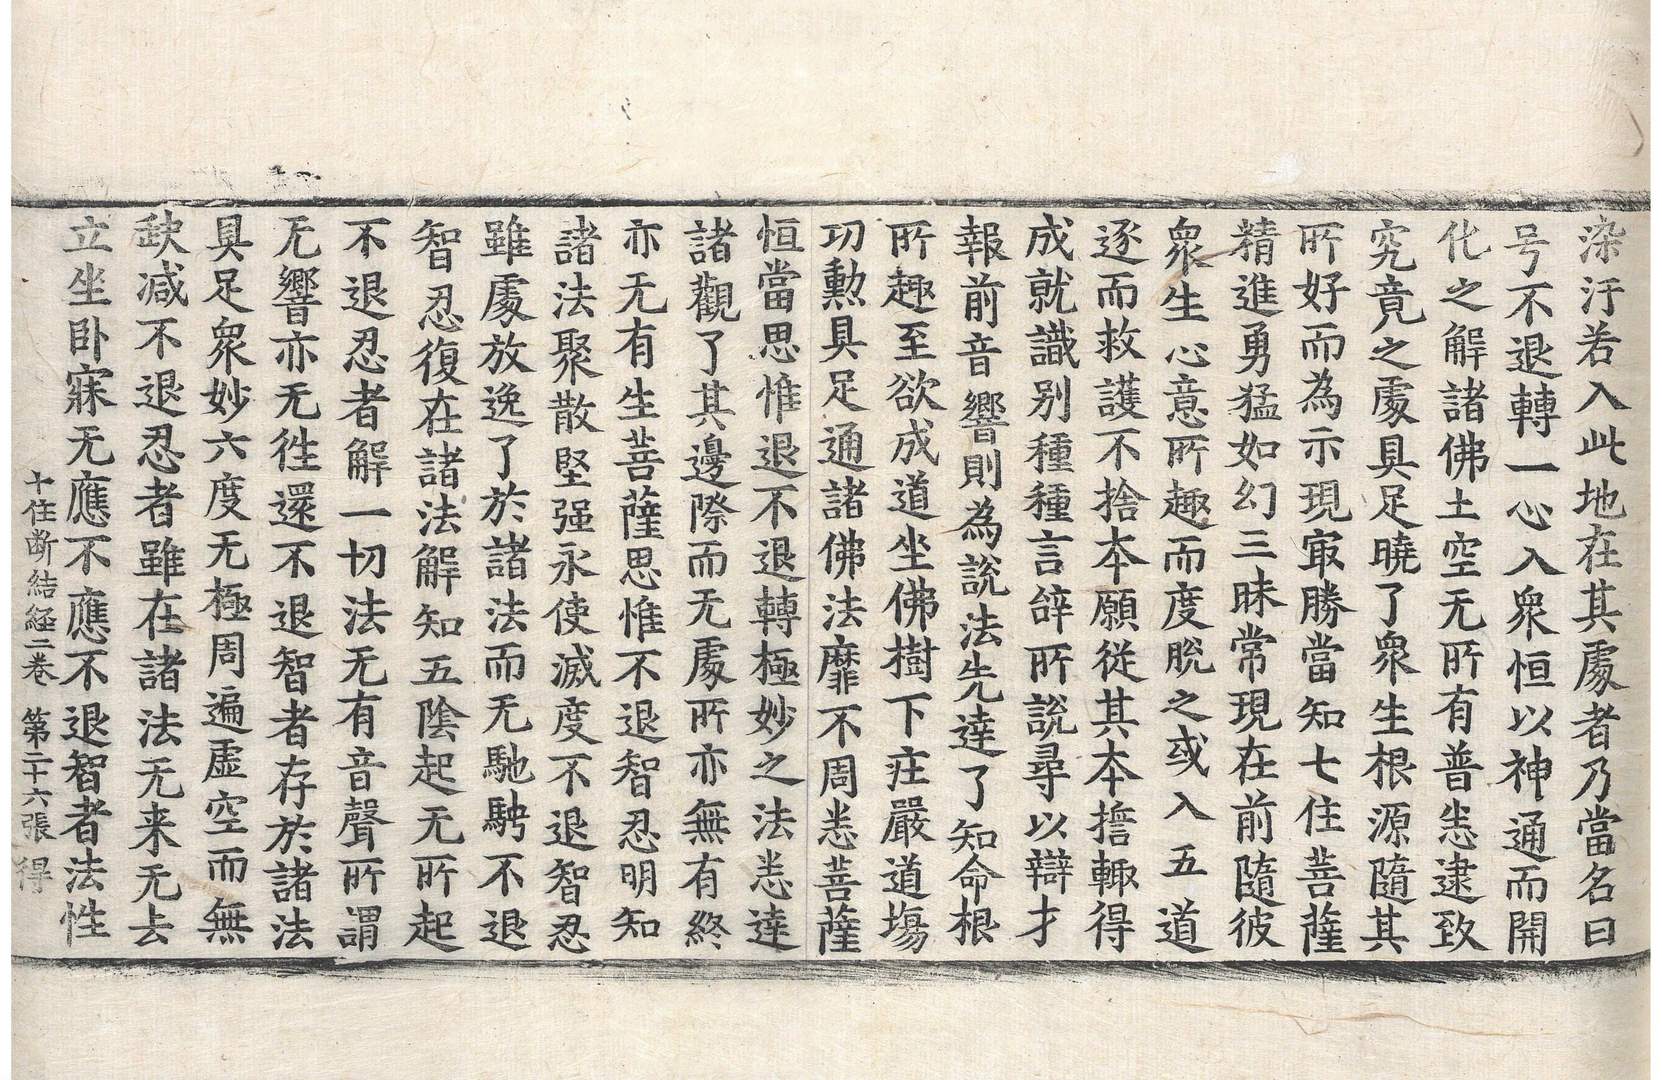 染汙若入此地在其處者乃當名曰
号不退轉一心入衆恒以神通而開
化之解諸佛土空无所有普悉逮致
究竟之處具足曉了衆生根源隨其
所好而為示現㝡勝當知七住菩薩
精進勇猛如幻三昧常現在前隨彼
衆生心意所趣而度脫之或入五道
逐而救護不捨本願從其本擔輙得
成就識别種種言辝所說尋以辯才
報前音響則為說法先達了知命根
所趣至欲成道坐佛樹下莊嚴道塲
功勲具足通諸佛法靡不周悉菩薩
恒當思惟退不退轉極妙之法悉達
諸觀了其邊際而无處所亦無有終
亦无有生菩薩思惟不退智忍明知
諸法聚散堅强永使滅度不退智忍
雖處放逸了於諸法而无馳騁不退
智忍復在諸法解知五陰起无所起
不退忍者解一切法无有音聲所謂
无響亦无徃還不退智者存於諸法
具足衆妙六度无極周遍虚空而無
缺减不退忍者雖在諸法无来无去
立坐卧寐无應不應不退智者法性
十住断結経二卷 第二十六張 得